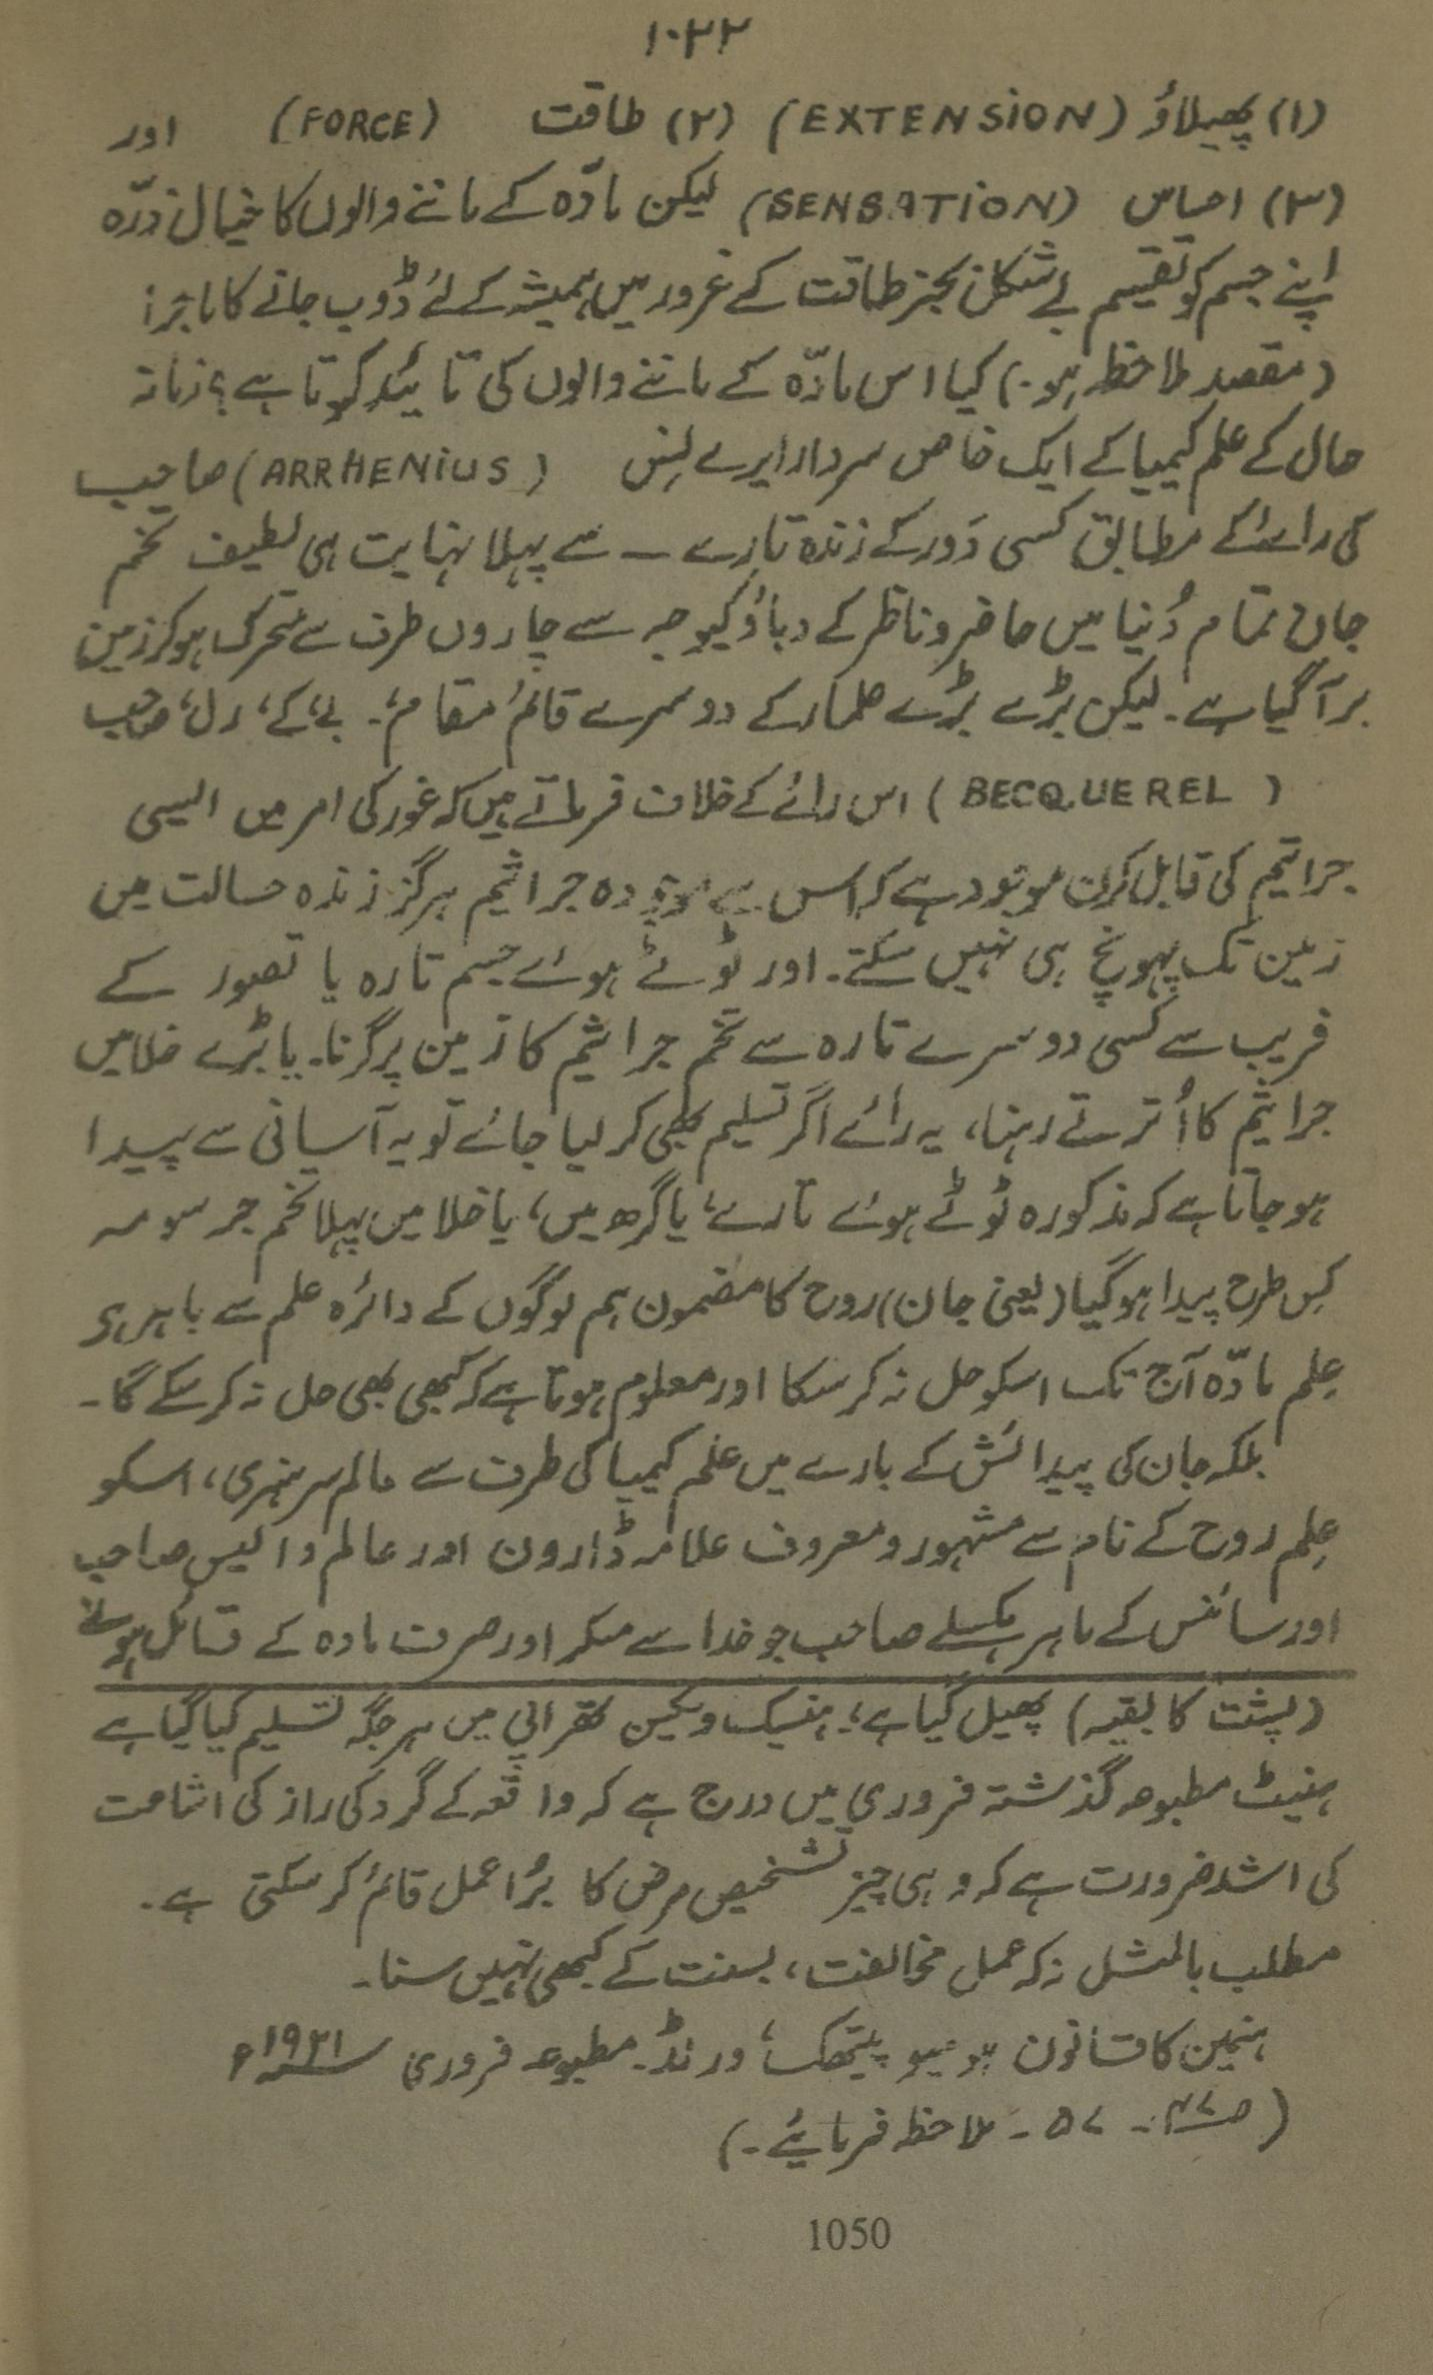 ۱۰۲۲
(۱) پھیلاؤ (EXTENSION) (۲) طاقت (FORCE) اور
(۳) احساس (SENSATION) لیکن مادّہ کے ماننے والوں کا خیال ذرّہ
اپنے جسم کو تقسیم بے شکلن بجز طاقت کے غرور میں ہمیشہ کے لئے ڈوب جانے کا ماجرا
(مقصد ملاحظہ ہو۔) کیا اس مادّہ کے ماننے والوں کی تائید کرتا ہے؟ زمانہ
حال کے علم کیمیا کے ایک خاص سردار ایرے لِنِس (ARRHENIUS) صاحب
کی رائے کے مطابق کسی دَور کے زندہ تارے — سے پہلا نہایت ہی لطیف تخم
جان تمام دُنیا میں حاضر و ناظر کے دباؤ کیوجہ سے چاروں طرف سے متحرک ہوکر زمین
پر آگیا ہے۔ لیکن بڑے بڑے علماء کے دوسرے قائم مقام، بے، کے، رل، صاحب
(BECQUEREL) اس رائے کے خلاف فرماتے ہیں کہ غور کی امر میں ایسی
جراثیم کی قابل کرن موجود ہے کہ اس سے موجودہ جراثیم ہرگز زندہ حالت میں
زمین تک پہونچ ہی نہیں سکتے۔ اور ٹوٹے ہوئے جسم تارہ یا تصور کے
قریب سے کسی دوسرے تارہ سے تخم جراثیم کا زمین پر گرنا۔ یا بڑے خلا میں
جراثیم کا اُترتے رہنا، یہ رائے اگر تسلیم بھی کرلیا جائے تو یہ آسانی سے پیدا
ہو جاتا ہے کہ مذکورہ ٹوٹے ہوئے تارے، یا گرھ میں، یا خلا میں پہلا تخم جرسومہ
کِس طرح پیدا ہوگیا (یعنی جان) روح کا مضمون ہم لوگوں کے دائرہ علم سے باہر ہی
عِلم مادّہ آج تک اسکو حل نہ کرسکا اور معلوم ہوتا ہے کہ کبھی بھی حل نہ کرسکے گا۔
بلکہ جان کی پیدائش کے بارے میں علم کیمیا کی طرف سے عالم سر ہنری، اسکو
عِلم روح کے نام سے مشہور و معروف علامہ ڈارون اور عالم والیس صاحب
اور سائنس کے ماہر ہکسلے صاحب جو خدا سے منکر اور صرف مادہ کے قائل ہوئے
(پشت کا بقیہ) پھیل گیا ہے، ہنیمک ویکین تھراپی میں ہر جگہ تسلیم کیا گیا ہے
ہنیٹ مطبوعہ گذشتہ فروری میں درج ہے کہ واقعہ کے گرد کی راز کی اشاعت
کی اشد ضرورت ہے کہ وہی چیز تشخیص مرض کا بڑا عمل قائم کرسکتی ہے۔
مطلب بالمثل نہ کہ عمل مخالفت، بسنت کے کبھی نہیں سنا۔
ہنیمین کا قانون ہومیو پیتھک، ورلڈ۔ مطبوعہ فروری سنہ ۱۹۲۱ء
(صـ ۷۴ـ ۷۵ ۔ ملاحظہ فرمایئے۔)
1050